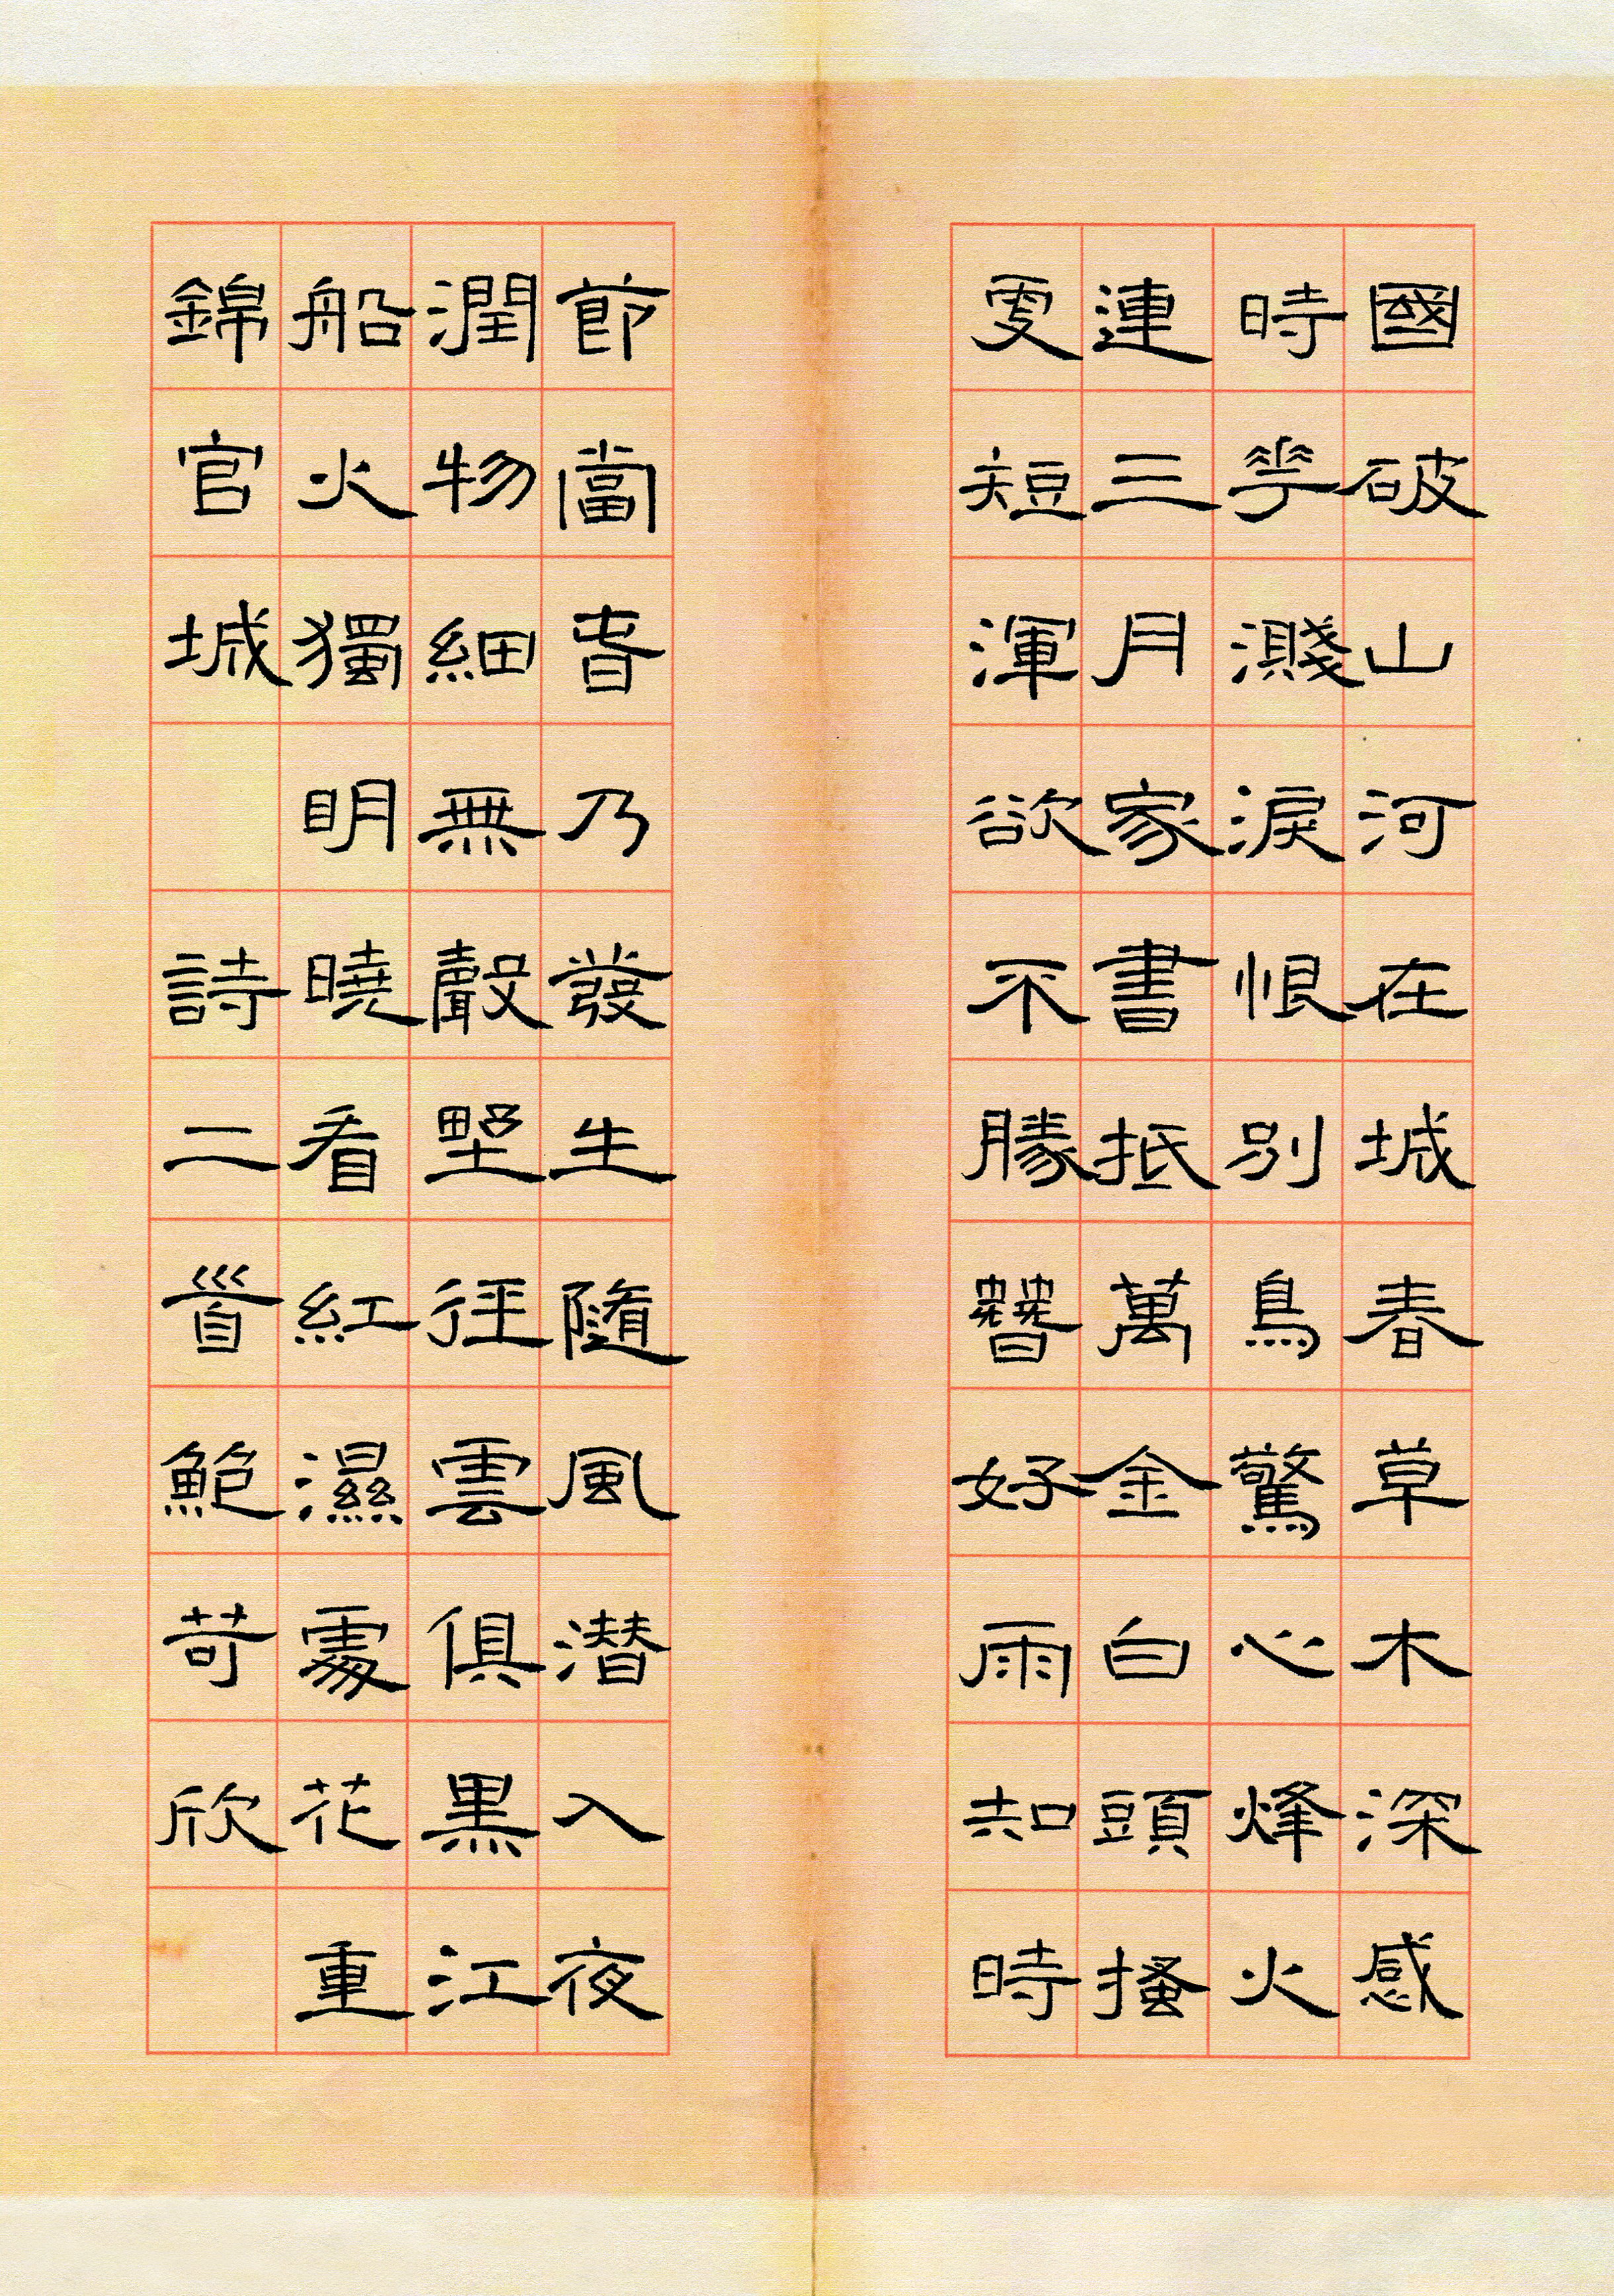 國破山河在城春草木深感
時華濺淚恨別鳥驚心烽火
連三月家書抵萬金白頭搔
更短渾欲不勝簪好雨知時
節當春乃發生隨風潛入夜
潤物細無聲野徑雲俱黑江
船火獨眀曉看紅濕處花重
錦官城 詩二首鮑苛欣